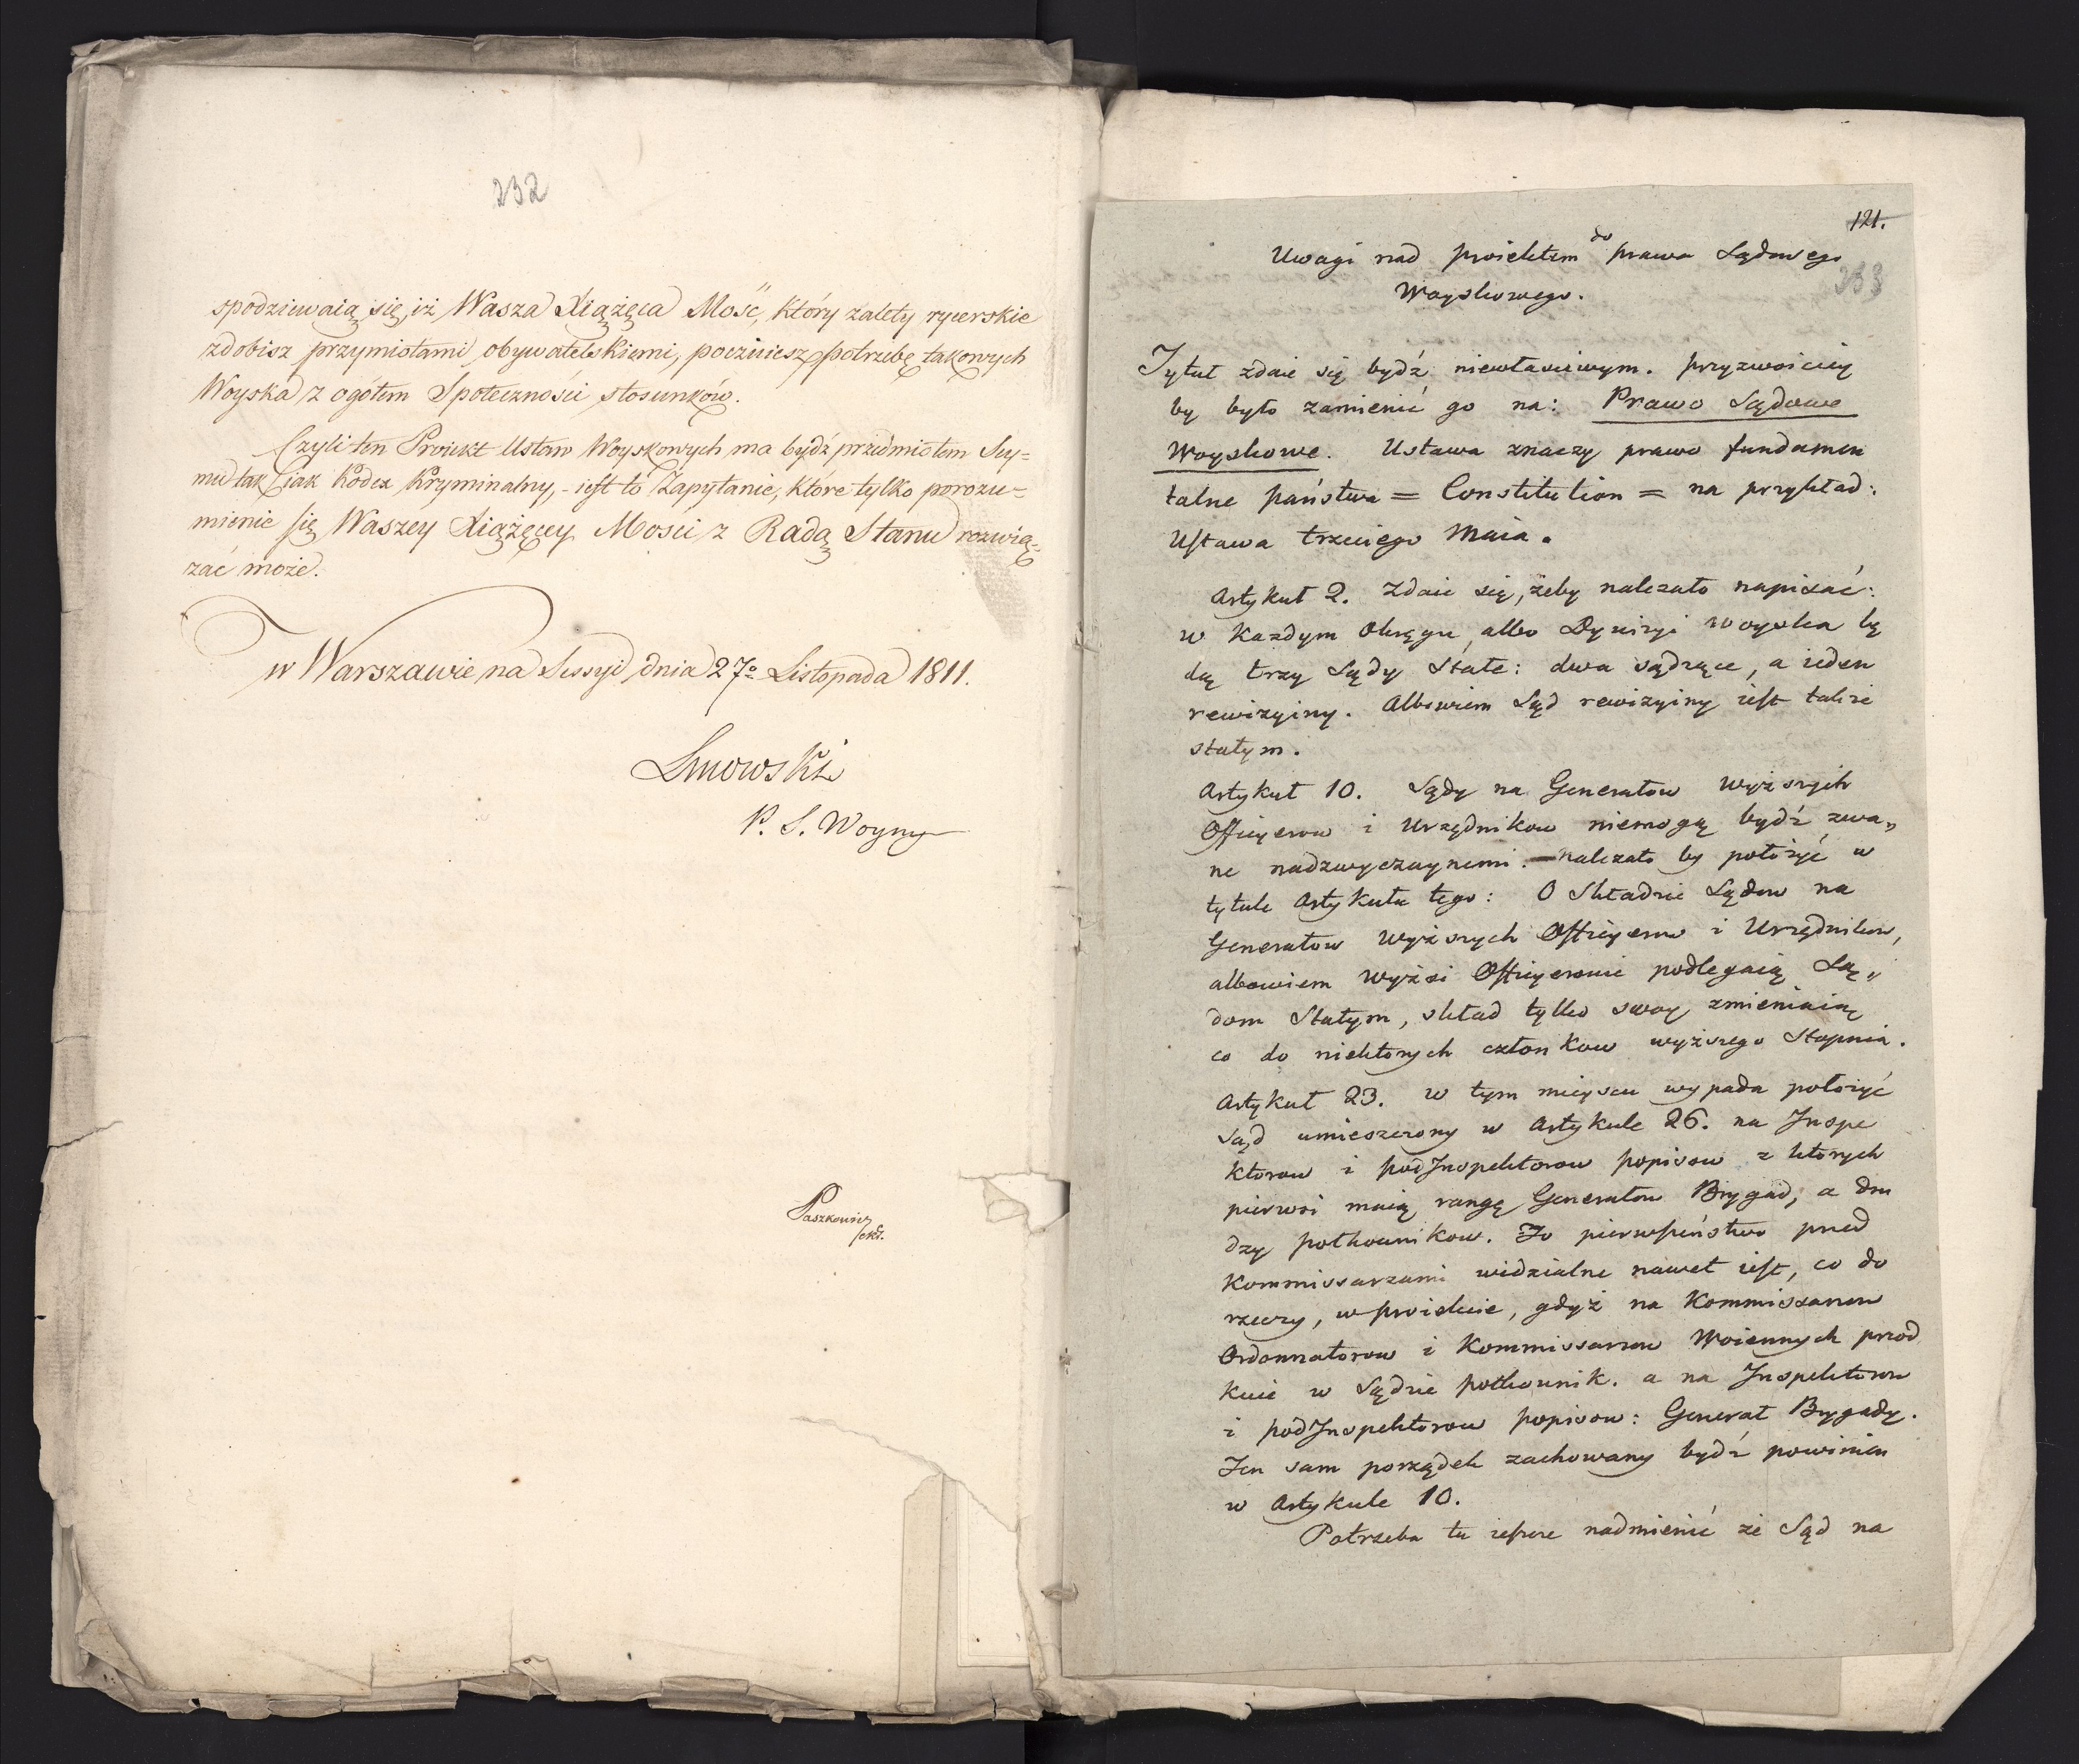 232
spodziewaią się, iż Wasza Xiążęca Mość, który zalety rycerskie
zdobisz przymiotami obywatelskiemi, poczuiesz potrzebę takowych
Woyska z ogółem Społeczności stosunków.
Czyli ten Proiekt Ustaw Woyskowych ma bydź przedmiotem Sey=
mu tak iak Kodex Kryminalny, - iest to Zapytanie, które tylko porozu=
mienie się Waszey Xiążęcey Mości z Radą Stanu rozwią=
zać może.
w Warszawie na Sessyi dnia 27º Listopada 1811.
Linowski
P. S. Woyny
Paszkowicz
sekr.
121.
233
Uwagi nad proiektem do prawa Sądowego
Woyskowego.
Tytuł zdaie się bydź niewłasciwym. przyzwoiciey
by było zamienić go na: Prawo Sądowe
Woyskowe. Ustawa znaczy prawo fundamen
talne państwa = Constitution = na przykład:
Ustawa trzeciego Maia.
Artykuł 2. Zdaie się, żeby należało napisać:
w każdym Okręgu, albo Dywizyi woyska bę
dą trzy Sądy Stałe: dwa sądzące, a ieden
rewizyiny. Albowiem Sąd rewizyiny iest także
stałym.
Artykuł 10. Sądy na Generałow wyższych
Officyerow i Urzędnikow niemogą bydź zwa„
ne nadzwyczaynemi. — należało by położyć w
tytule Artykułu tego: O Składzie Sądow na
Generałow wyższych Officyerow i Urzędnikow,
albowiem wyżsi Officyerowie podlegaią Są„
dom Stałym, skład tylko swoy zmieniaią
co do niektorych członkow wyższego Stopnia.
Artykuł 23. w tym mieyscu wypada położyć
Sąd umieszczony w Artykule 26. na Inspe
ktorow i podInspektorow popisow z ktorych
pierwsi maią rangę Generałow Brygad, a dru
dzy połkownikow. To pierwszeństwo przed
Kommissarzami widzialne nawet iest, co do
rzeczy, w proiekcie, gdyż na Kommissarzow
Ordonnatorow i Kommissarzow Woiennych przod
kuie w Sądzie połkownik. a na Inspektorow
i podInspektorow popisow: Generał Brygady.
Ten sam porządek zachowany bydź powinien
w Artykule 10.
Potrzeba tu ieszcze nadmienić że Sąd na